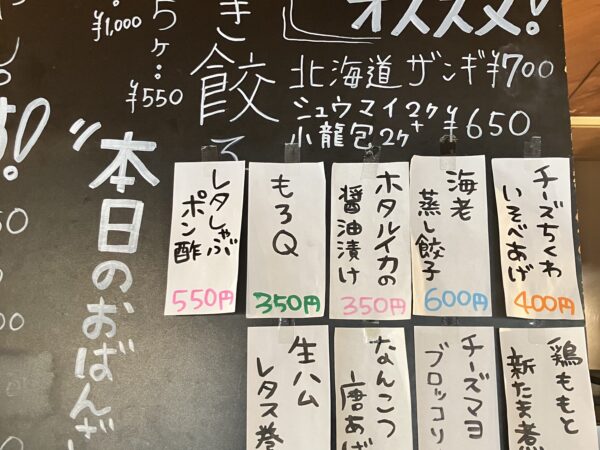 オススメ!
北海道 ザンギ ¥700
シュウマイ2ヶ
小龍包2ヶ
¥650
き餃
5ヶ:
¥1,000
¥550
"本日のおばんざ
レタしゃぶ
ポン酢
550円
もろQ
350円
ホタルイカの
醤油漬け
350円
海老
蒸し餃子
600円
チーズちくわ
いそべあげ
400円
生ハム
レタス巻
なんこつ
唐あげ
チーズマヨ
ブロッコリ
鶏ももと
新たま煮